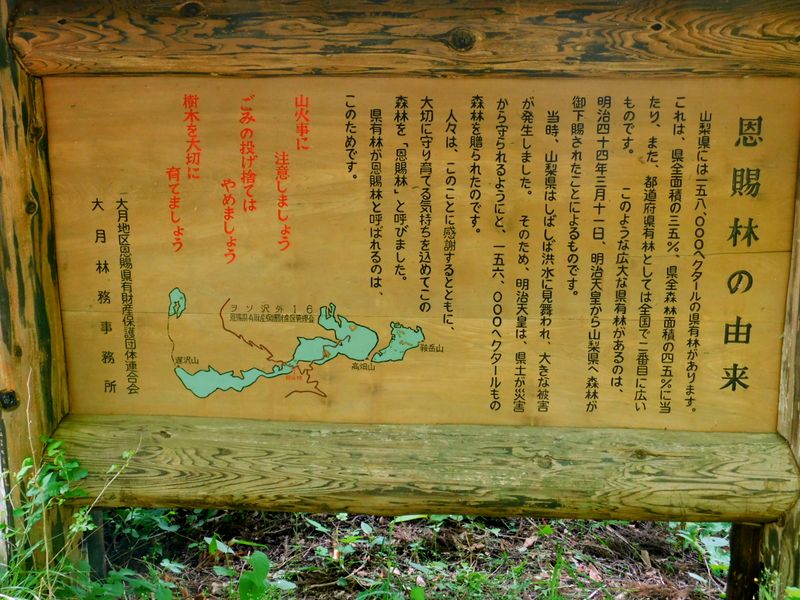 恩賜林の由来
山梨県には一五八、〇〇〇ヘクタールの県有林があります。
これは、県全面積の三五％、県全森林面積の四五％に当
たり、また、都道府県有林としては全国で二番目に広い
ものです。　このような広大な県有林があるのは、
明治四十四年三月十一日、明治天皇から山梨県へ森林が
御下賜されたことによるものです。
当時、山梨県はしばしば洪水に見舞われ、大きな被害
が発生しました。　そのため、明治天皇は、県土が災害
から守られるようにと、一五六、〇〇〇ヘクタールもの
森林を贈られたのです。
人々は、このことに感謝するとともに、
大切に守り育てる気持ちを込めてこの
森林を「恩賜林」と呼びました。
県有林が恩賜林と呼ばれるのは、
このためです。
山火事に
注意しましょう
ごみの投げ捨ては
やめましょう
樹木を大切に
育てましょう
大月地区恩賜県有財産保護団体連合会
大月林務事務所
ヲソ沢外16
恩賜県有財産保護財産区管理会
鞍岳山
高畑山
遅沢山